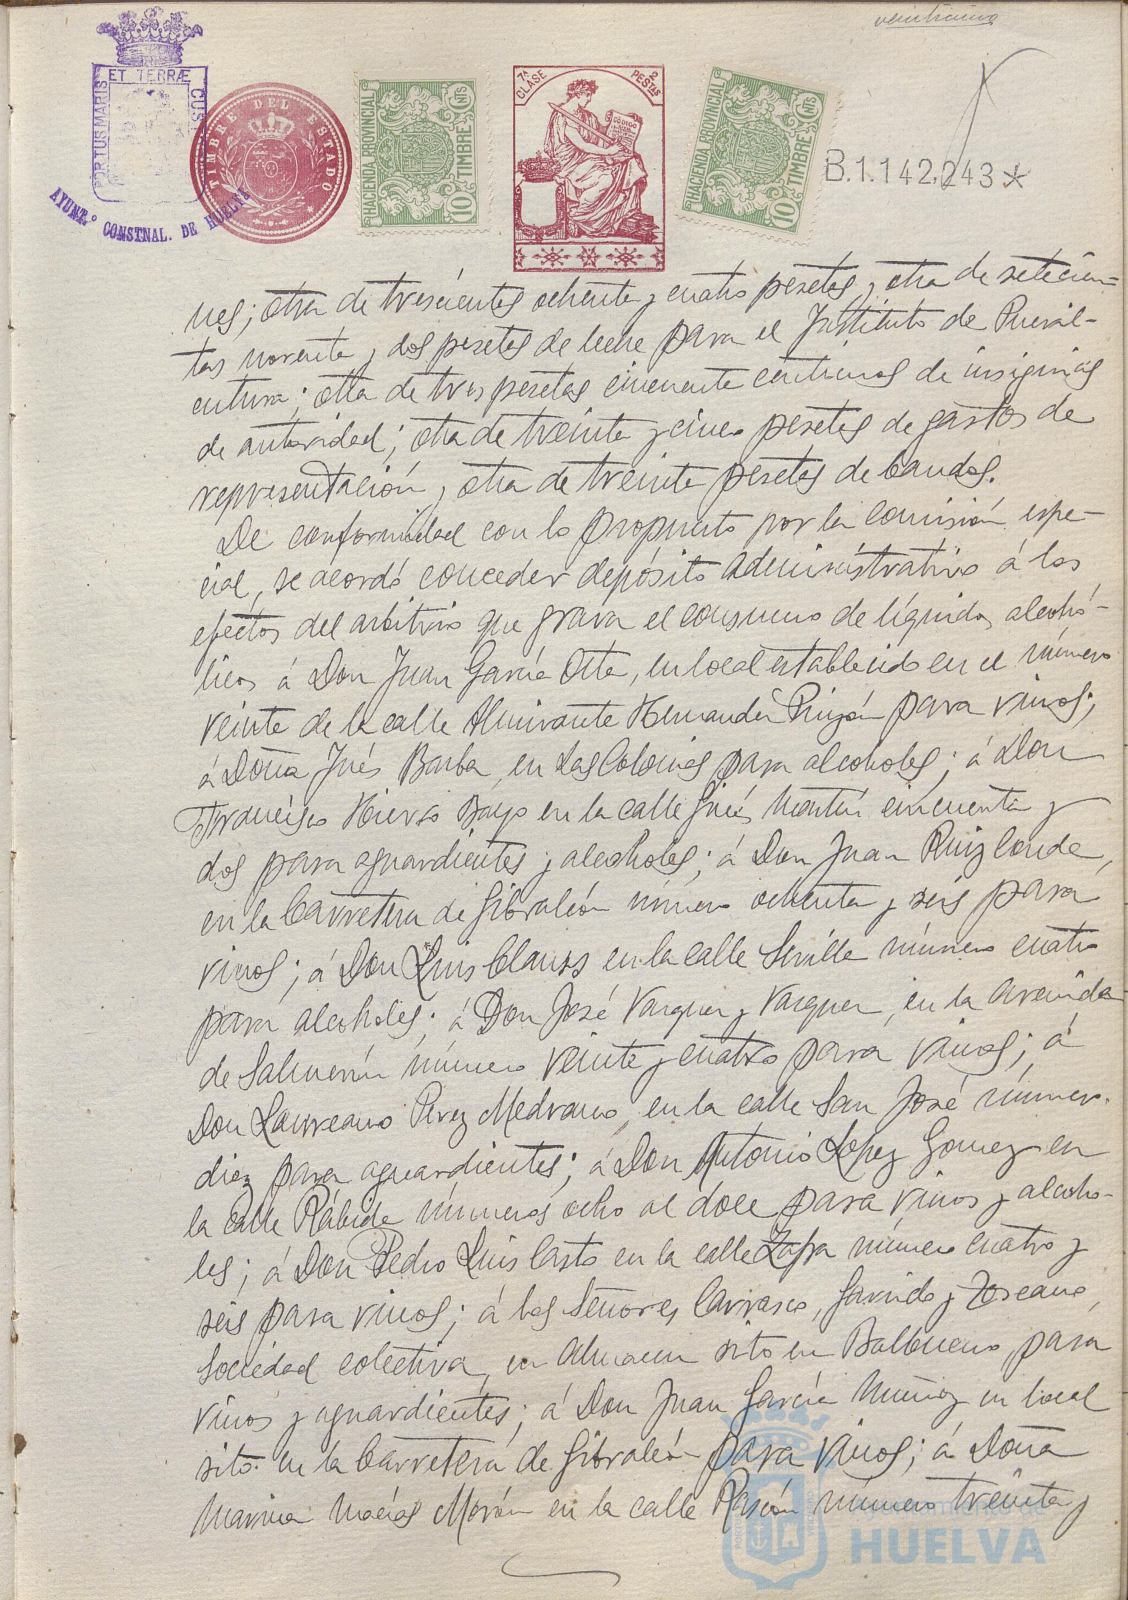 veintinueve
ET TERRÆ
PORTUS MARIS
CUST
AYUNT.º CONSTNAL. DE HUELVA
TIMBRE DEL ESTADO
HACIENDA PROVINCIAL
TIMBRE
10 CNTS
7ª CLASE
2 PESTAS
CODIGO
HACIENDA PROVINCIAL
TIMBRE
10 CNTS
B.1.142.243*
nes; otra de trescientas ochenta y cuatro pesetas y otra de setecien-
tas noventa y dos pesetas de leche para el Instituto de Pueril-
cultura; otra de tres pesetas cincuenta centimos de insignias
de autoridad; otra de treinta y cinco pesetas de gastos de
representación y otra de treinta pesetas de bandos.
De conformidad con lo propuesto por la comisión espe-
cial, se acordó conceder depósito administrativo á los
efectos del arbitrio que grava el consumo de líquidos alcohó-
licos á Don Juan García Otte, en local establecido en el número
veinte de la calle Almirante Hernandez Pinzón para vinos;
á Doña Inés Barba en Las Colonias para alcoholes; á Don
Francisco Hierro Bayo en la calle Ginés Martín cincuenta y
dos para aguardientes y alcoholes; á Don Juan Ruiz Conde,
en la Carretera de Gibraleón número ochenta y seis para
vinos; á Don Luis Clauss en la calle Sevilla número cuatro
para alcoholes; á Don José Vazquez y Vazquez, en la avenida
de Salmerón número veinte y cuatro para vinos; á
Don Laureano Perez Medrano, en la calle San José número
diez para aguardientes; á Don Antonio Lopez Gomez en
la calle Rábida números ocho al doce para vinos y alcoho-
les; á Don Pedro Luis Casto en la calle Zafra número cuatro y
seis para vinos; á los Señores Carrasco, Garrido y Toscano,
Sociedad colectiva en almacen sito en Balbueno, para
vinos y aguardientes; á Don Juan García Muñoz en local
sito en la Carretera de Gibraleón para vinos; á Doña
Marina Macías Morón en la calle Rascón número treinta y
Ayuntamiento de
HUELVA